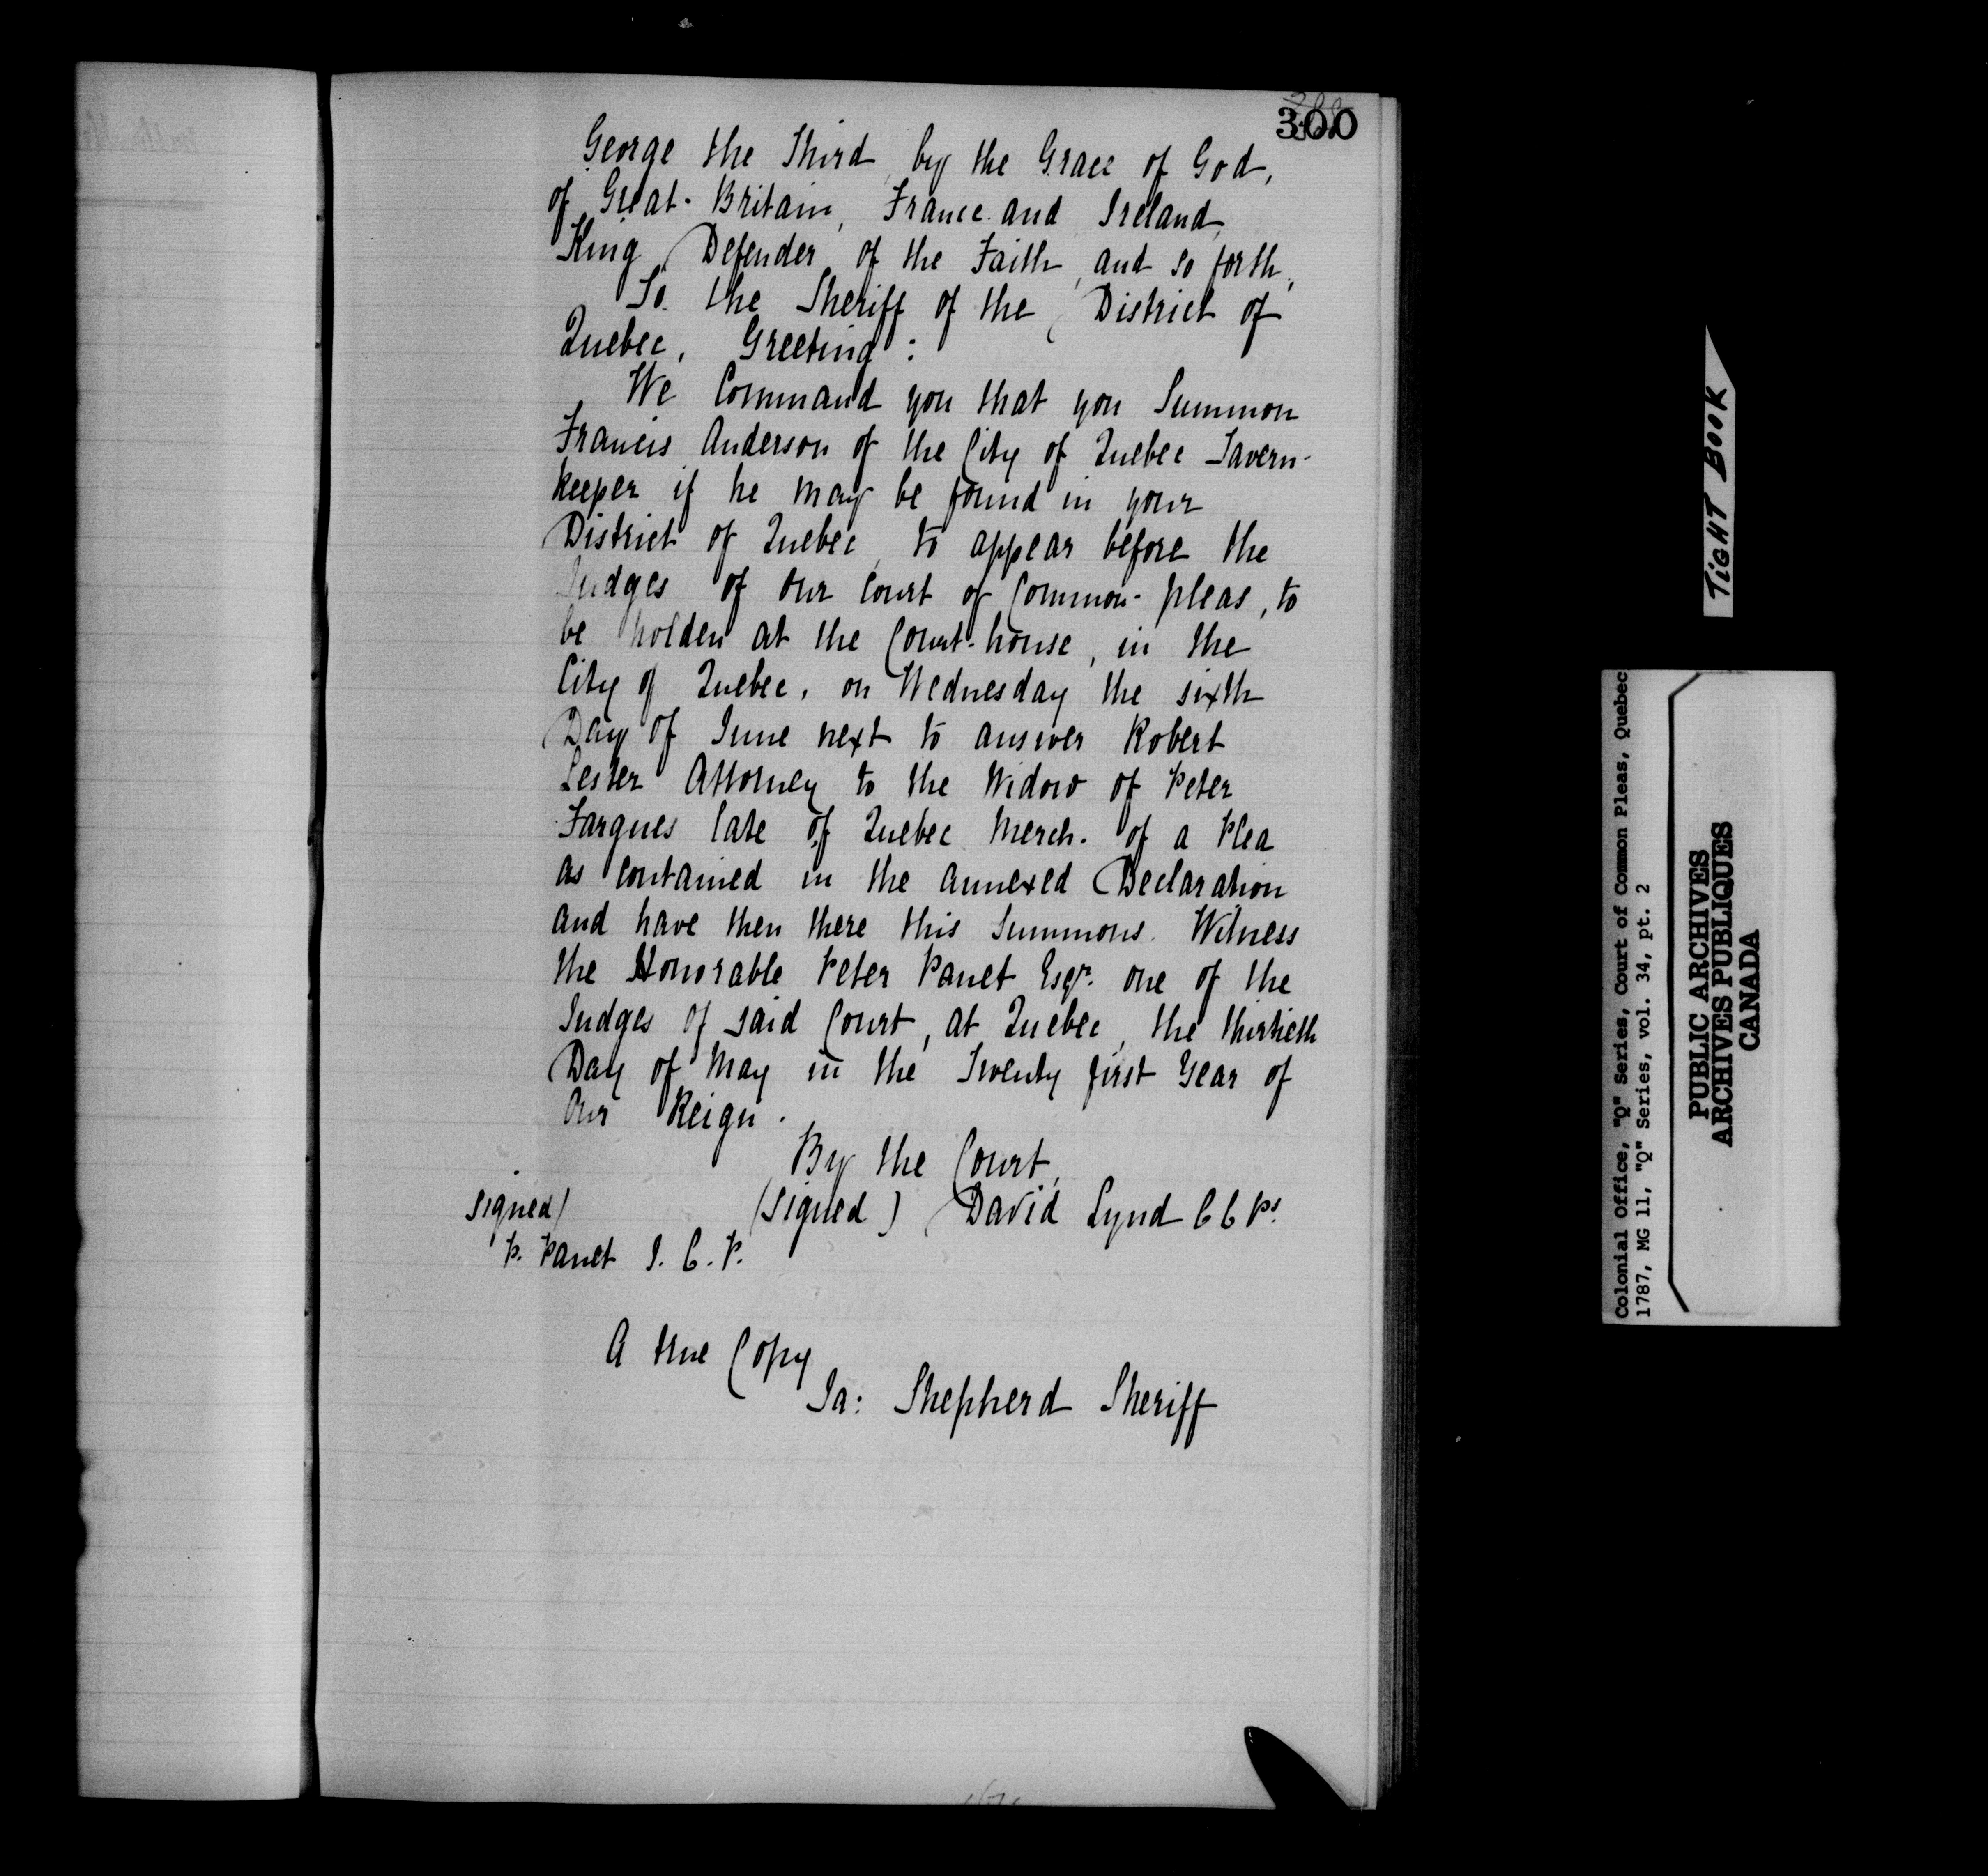 300
George the Third, by the Grace of God,
of Great-Britain, France and Ireland,
King, Defender of the Faith, and so forth,
To the Sheriff of the District of
Quebec, Greeting:
We Command you that you Summon
Francis Anderson of the City of Quebec Tavern-
keeper if he may be found in your
District of Quebec, to appear before the
Judges of our Court of Common-pleas, to
be holden at the Court-house, in the
City of Quebec, on Wednesday the sixth
Day of June next to answer Robert
Lester Attorney to the Widow of Peter
Fargues late of Quebec Merch. of a Plea
as contained in the annexed Declaration
and have then there this Summons. Witness
the Honorable Peter Panet Esqr. one of the
Judges of said Court, at Quebec, the thirtieth
Day of May in the Twenty first Year of
Our Reign.
By the Court,
signed) (signed) David Lynd C C Ps.
P. Panet J. C. P.
A true Copy
Ja: Shepherd Sheriff
TIGHT BOOK
Colonial Office, "Q" Series, Court of Common Pleas, Quebec
1787, MG 11, "Q" Series, vol. 34, pt. 2
PUBLIC ARCHIVES
ARCHIVES PUBLIQUES
CANADA